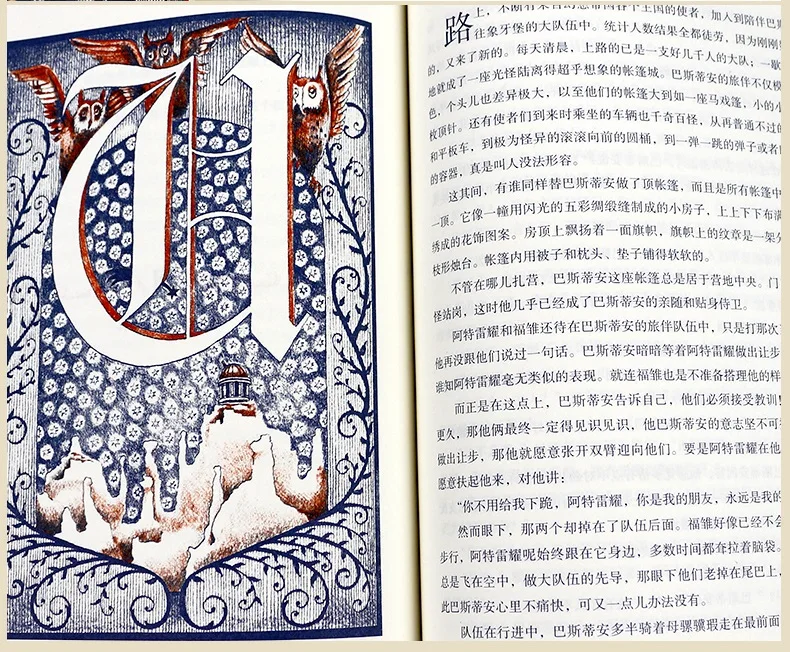 U
路上，不断有来自幻想帝国各个王国的使者，加入到陪伴巴斯
往象牙塔的大队伍中。统计人数结果全都徒劳，因为刚刚
的，又来了新的。每天清晨，上路的已是一支好几千人的大队；一歇
地就成了一座光怪陆离得超乎想象的帐篷城。巴斯蒂安的旅伴不仅模
色，个头儿也差异极大，以至他们的帐篷大到如一座马戏篷，小的小
枚顶针。还有使者们到来时乘坐的车辆也千奇百怪，从再普通不过的
和平板车，到极为怪异的滚滚向前的圆桶，到一弹一跳的弹子或者
的容器，真是叫人没法形容。
这其间，有谁同样替巴斯蒂安做了顶帐篷，而且是所有帐篷中
一顶。它像一幢用闪光的五彩绸缎缝制成的小房子，上上下下布满
绣成的花饰图案。房顶上飘扬着一面旗帜，旗帜上的纹章是一架
枝形烛台。帐篷内用被子和枕头、垫子铺得软软的。
不管在哪儿扎营，巴斯蒂安这座帐篷总是居于营地中央。门
怪站岗，这时他几乎已经成了巴斯蒂安的亲随和贴身侍卫。
阿特雷耀和福雏还待在巴斯蒂安的旅伴队伍中，只是打那次
他再没跟他们说过一句话。巴斯蒂安暗暗等着阿特雷耀做出让步
谁知阿特雷耀毫无类似的表现。就连福雏也是不准备搭理他的样
而正是在这点上，巴斯蒂安告诉自己，他们必须接受教训
更久，那他俩最终一定得见识见识，他巴斯蒂安的意志坚不可
做出让步，那他就愿意张开双臂迎向他们。要是阿特雷耀在他
愿意扶起他来，对他讲：
“你不用给我下跪，阿特雷耀，你是我的朋友，永远是我的
然而眼下，那两个却掉在了队伍后面。福雏好像已经不会
步行，阿特雷耀呢始终跟在它身边，多数时间都耷拉着脑袋。
总是飞在空中，做大队伍的先导，那眼下他们老掉在尾巴上，
此巴斯蒂安心里不痛快，可又一点儿办法没有。
队伍在行进中，巴斯蒂安多半骑着母骡骥瑕走在最前面